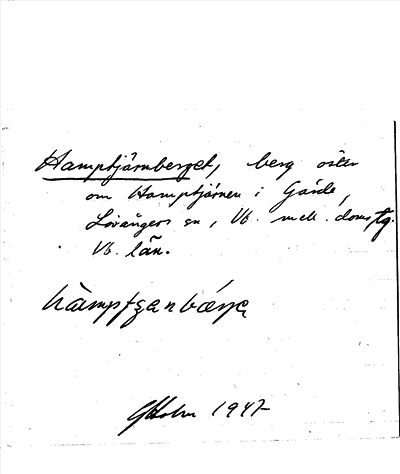 Hamptjärnberget, berg öster
om Hamptjärnen i Gärde,
Lövångers sn, Vb. mell. doms, tg.
Vb. län.
GHolm 1947